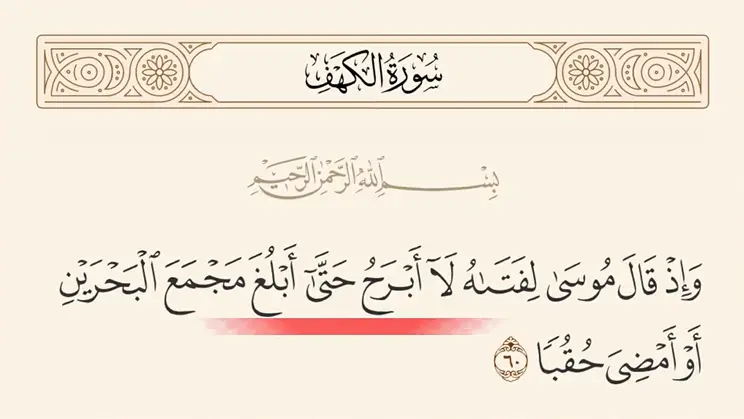 سُورَةُ الكَهْفِ
بِسْمِ اللَّهِ الرَّحْمَٰنِ الرَّحِيمِ
وَإِذْ قَالَ مُوسَىٰ لِفَتَىٰهُ لَآ أَبْرَحُ حَتَّىٰٓ أَبْلُغَ مَجْمَعَ ٱلْبَحْرَيْنِ
أَوْ أَمْضِىَ حُقُبًا ٦٠